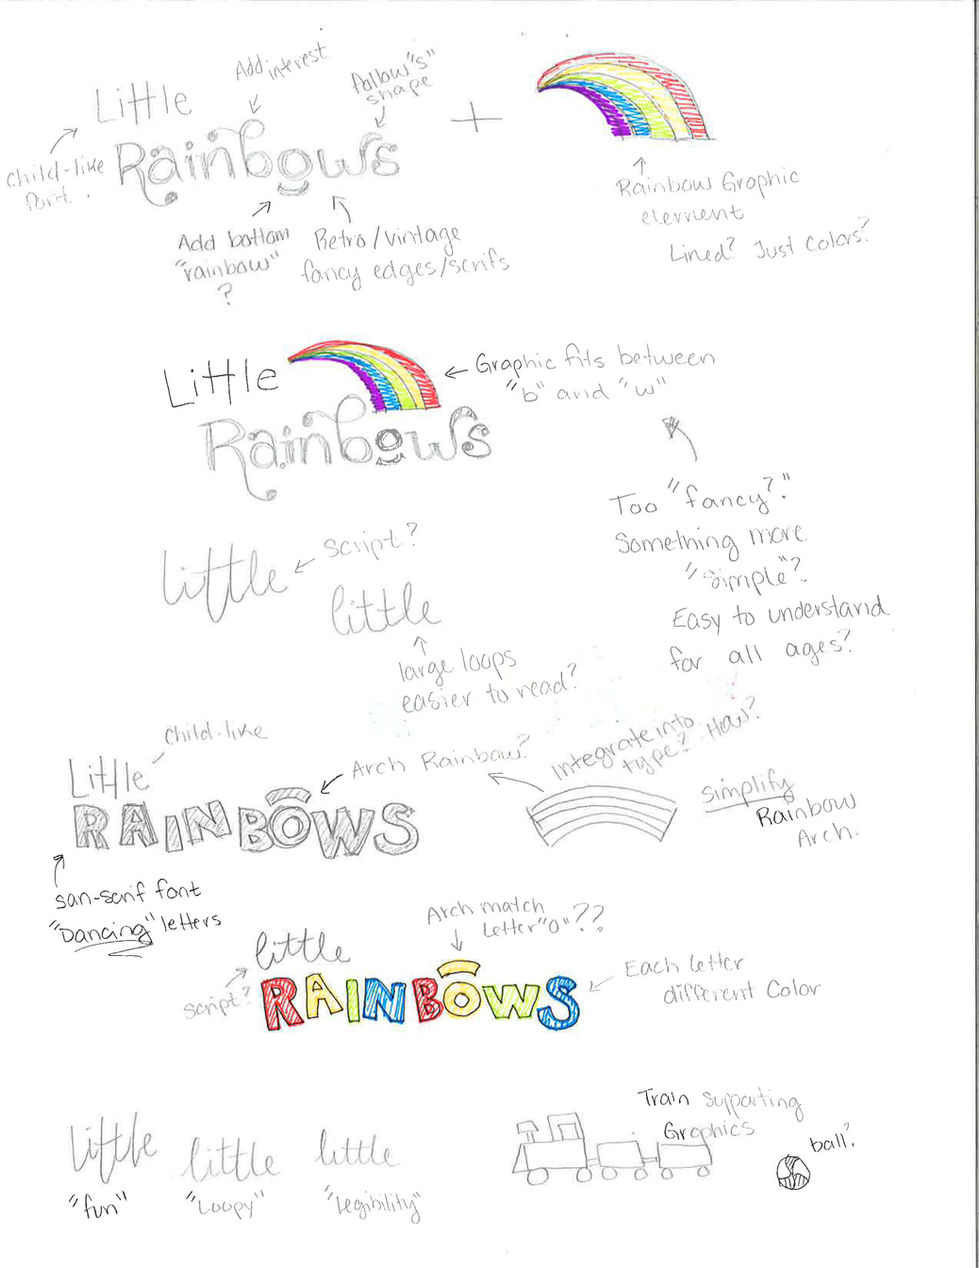 Add interest
follow "s"
shape
Little
Rainbows
child-like
font.
Add bottom
"rainbow"
?
Retro/vintage
fancy edges/scrifs
+
Rainbow Graphic
element
Lined? Just Colors?
Little
Rainbows
Graphic fits between
"b" and "w"
Too "fancy?"
Something more
"simple"?
Easy to understand
for all ages?
little
script?
little
large loops
easier to read?
child-like
Little
RAINBOWS
Arch Rainbow?
Integrate into
type? How?
Simplify
Rainbow
Arch.
san-serif font
"Dancing" letters
little
script?
RAINBOWS
Arch match
Letter "O"??
Each letter
different Color
little
"fun"
little
"Loopy"
little
"Legibility"
Train Supporting
Graphics
ball?